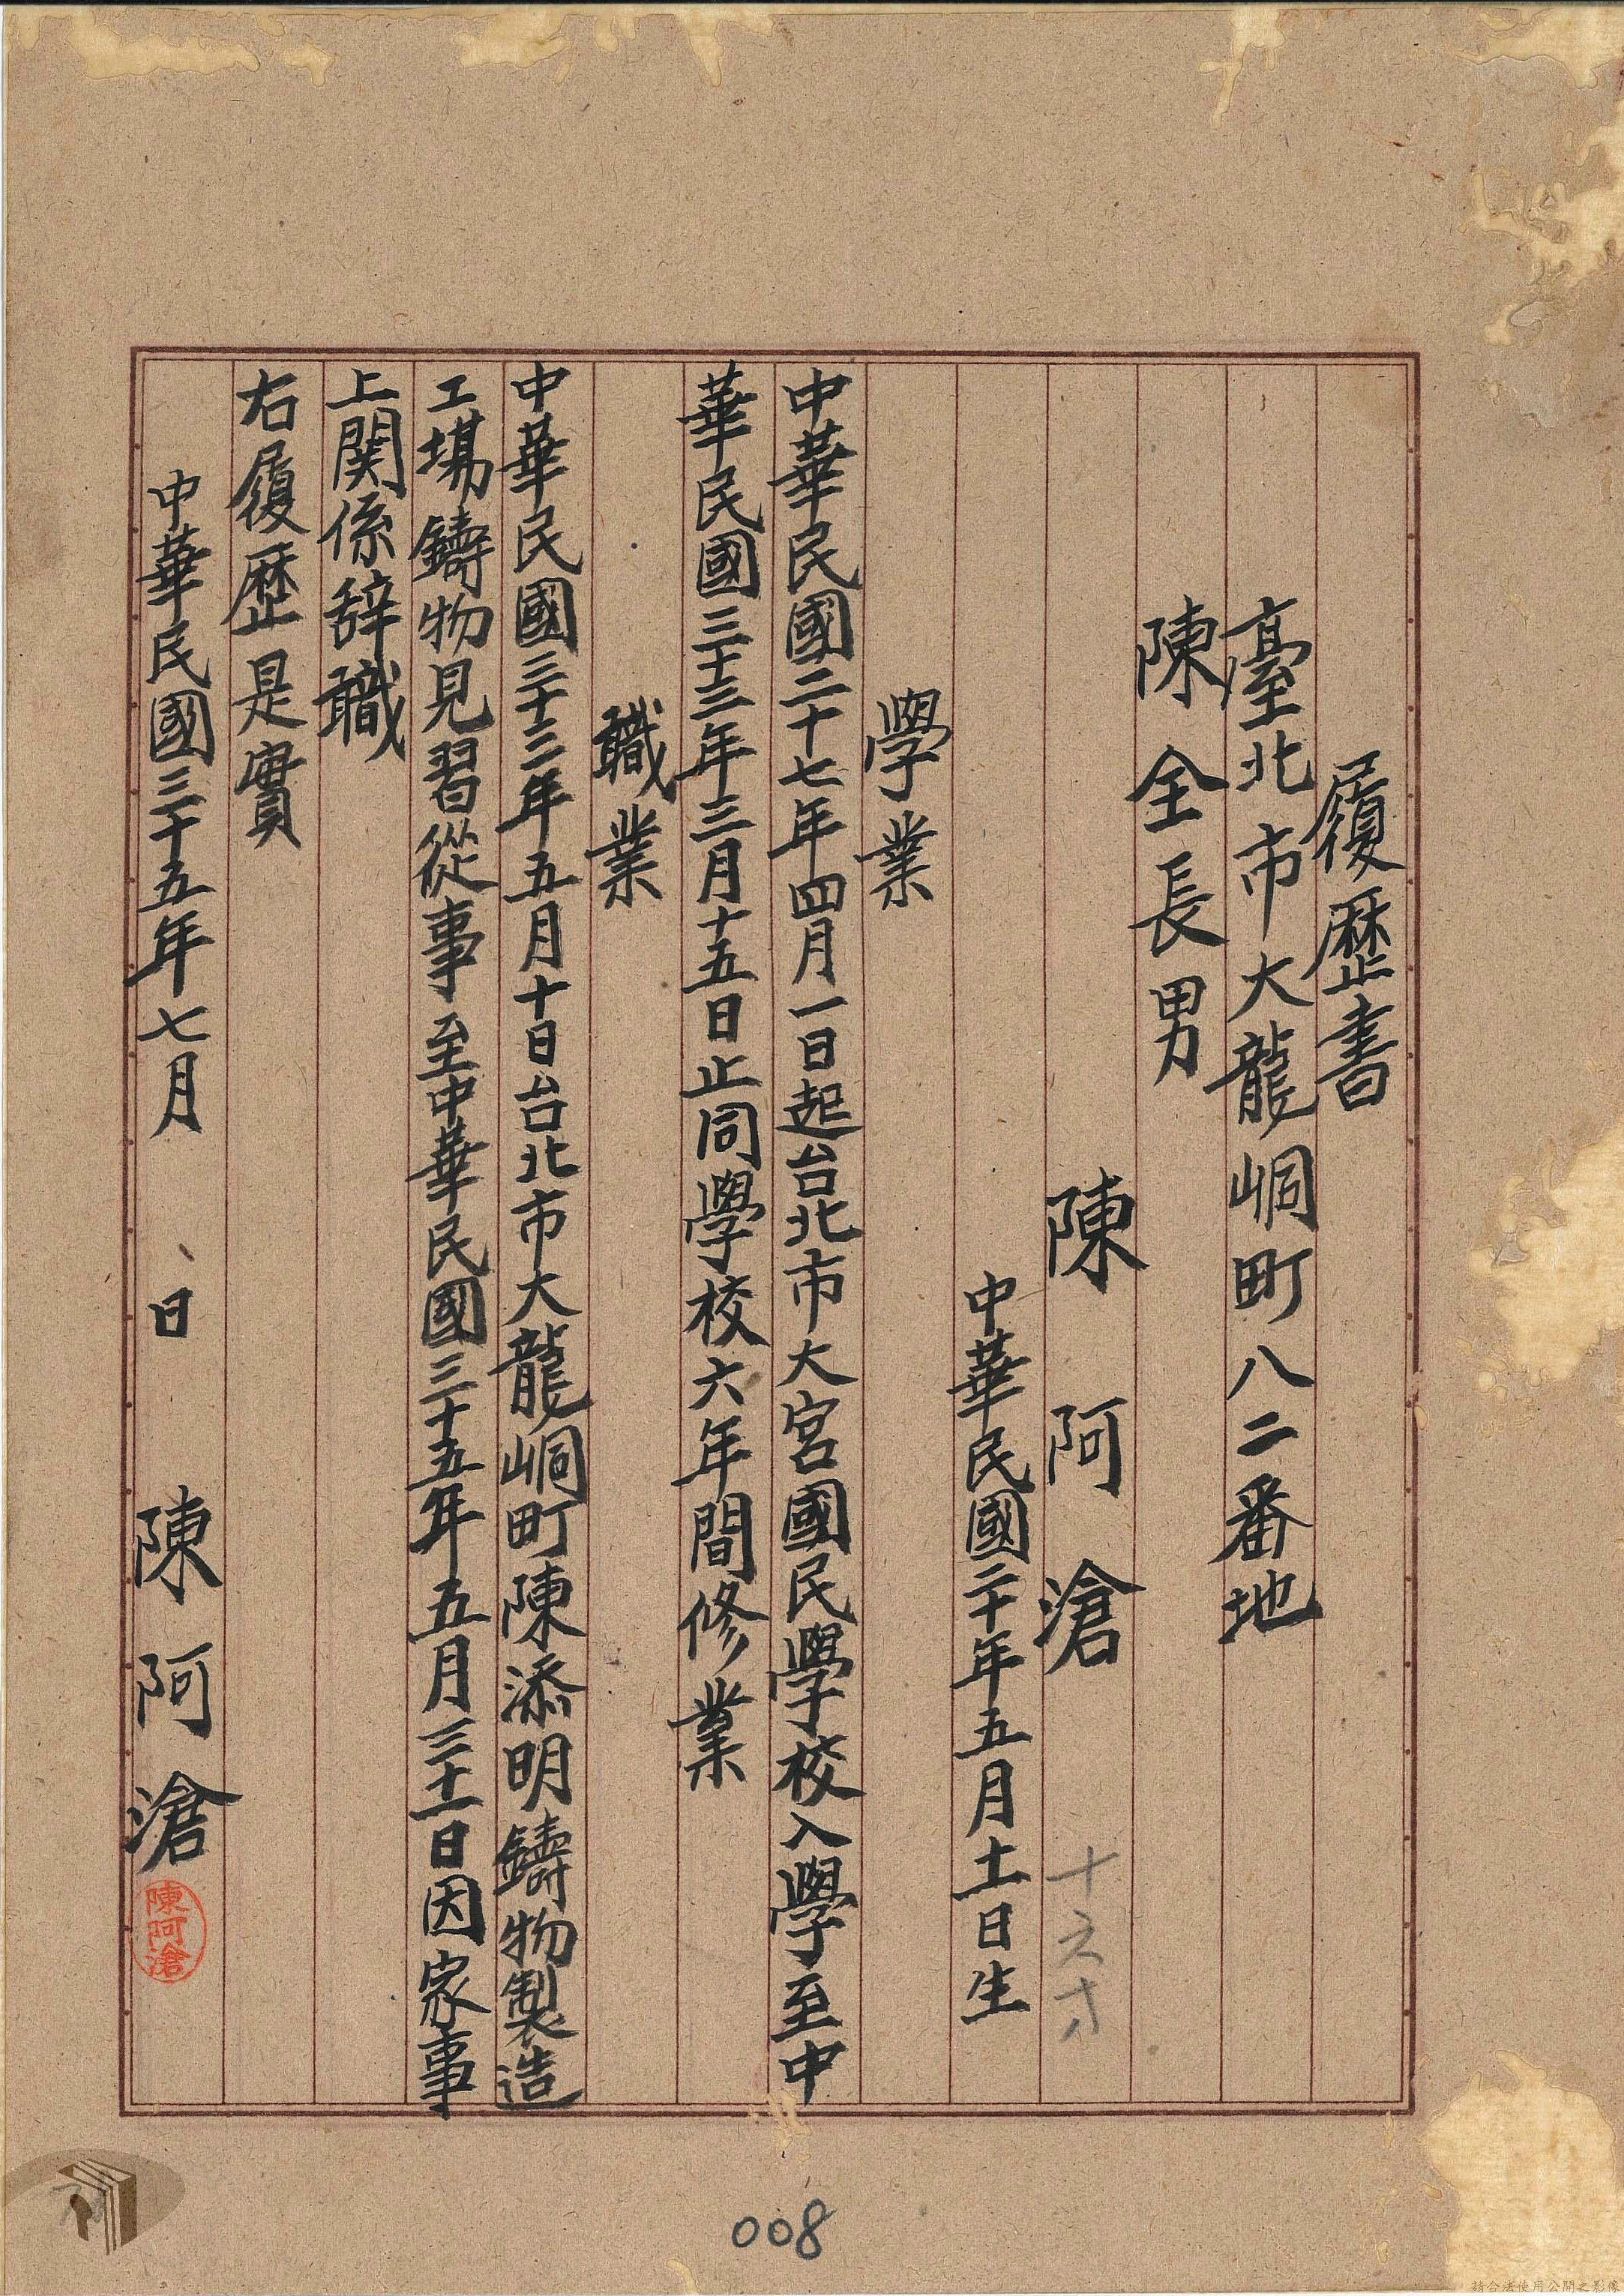 履歷書
臺北市大龍峒町八二番地
陳全長男
陳阿滄
十六才
中華民國二十年五月十一日生
學業
中華民國二十七年四月一日起台北市大宮國民學校入學至中
華民國三十三年三月十五日止同學校六年間修業
職業
中華民國三十三年五月十日台北市大龍峒町陳添明鑄物製造
工場鑄物見習從事至中華民國三十五年五月三十一日因家事
上関係辞職
右履歷是實
中華民國三十五年七月 日 陳阿滄
陳阿滄
008
請合法使用公開之影像